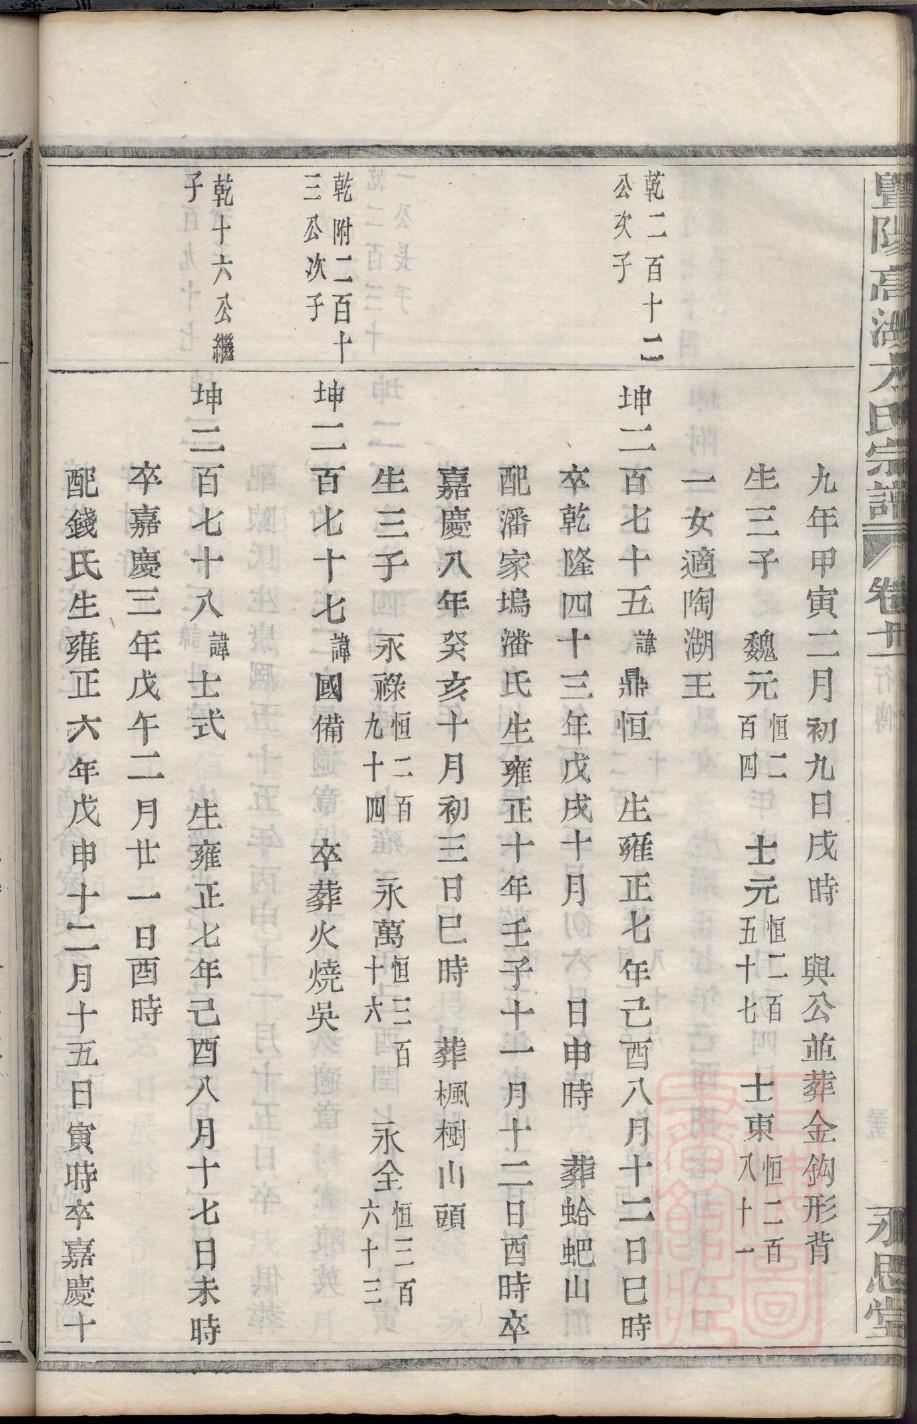 暨陽高湖方氏宗譜 卷廿 永思堂
九年甲寅二月初九日戌時 與公並葬金鈎形背
生三子 魏元恒二百四 士元恒二百五十七 士東恒二百八十一
一女適陶湖王
乾二百十二公次子
坤二百七十五諱鼎恒 生雍正七年己酉八月十二日巳時
卒乾隆四十三年戊戌十月 日申時 葬蛤蚆山
配潘家塢潘氏生雍正十年壬子十一月十二日酉時卒
嘉慶八年癸亥十月初三日巳時 葬楓樹山頭
生三子 永祿恒二百九十四 永萬恒三百十六 永全恒三百六十三
乾附二百十三公次子
坤二百七十七諱國備 卒葬火燒吳
乾十六公繼子
坤二百七十八諱士式 生雍正七年己酉八月十七日未時
卒嘉慶三年戊午二月廿一日酉時
配錢氏生雍正六年戊申十二月十五日寅時卒嘉慶十